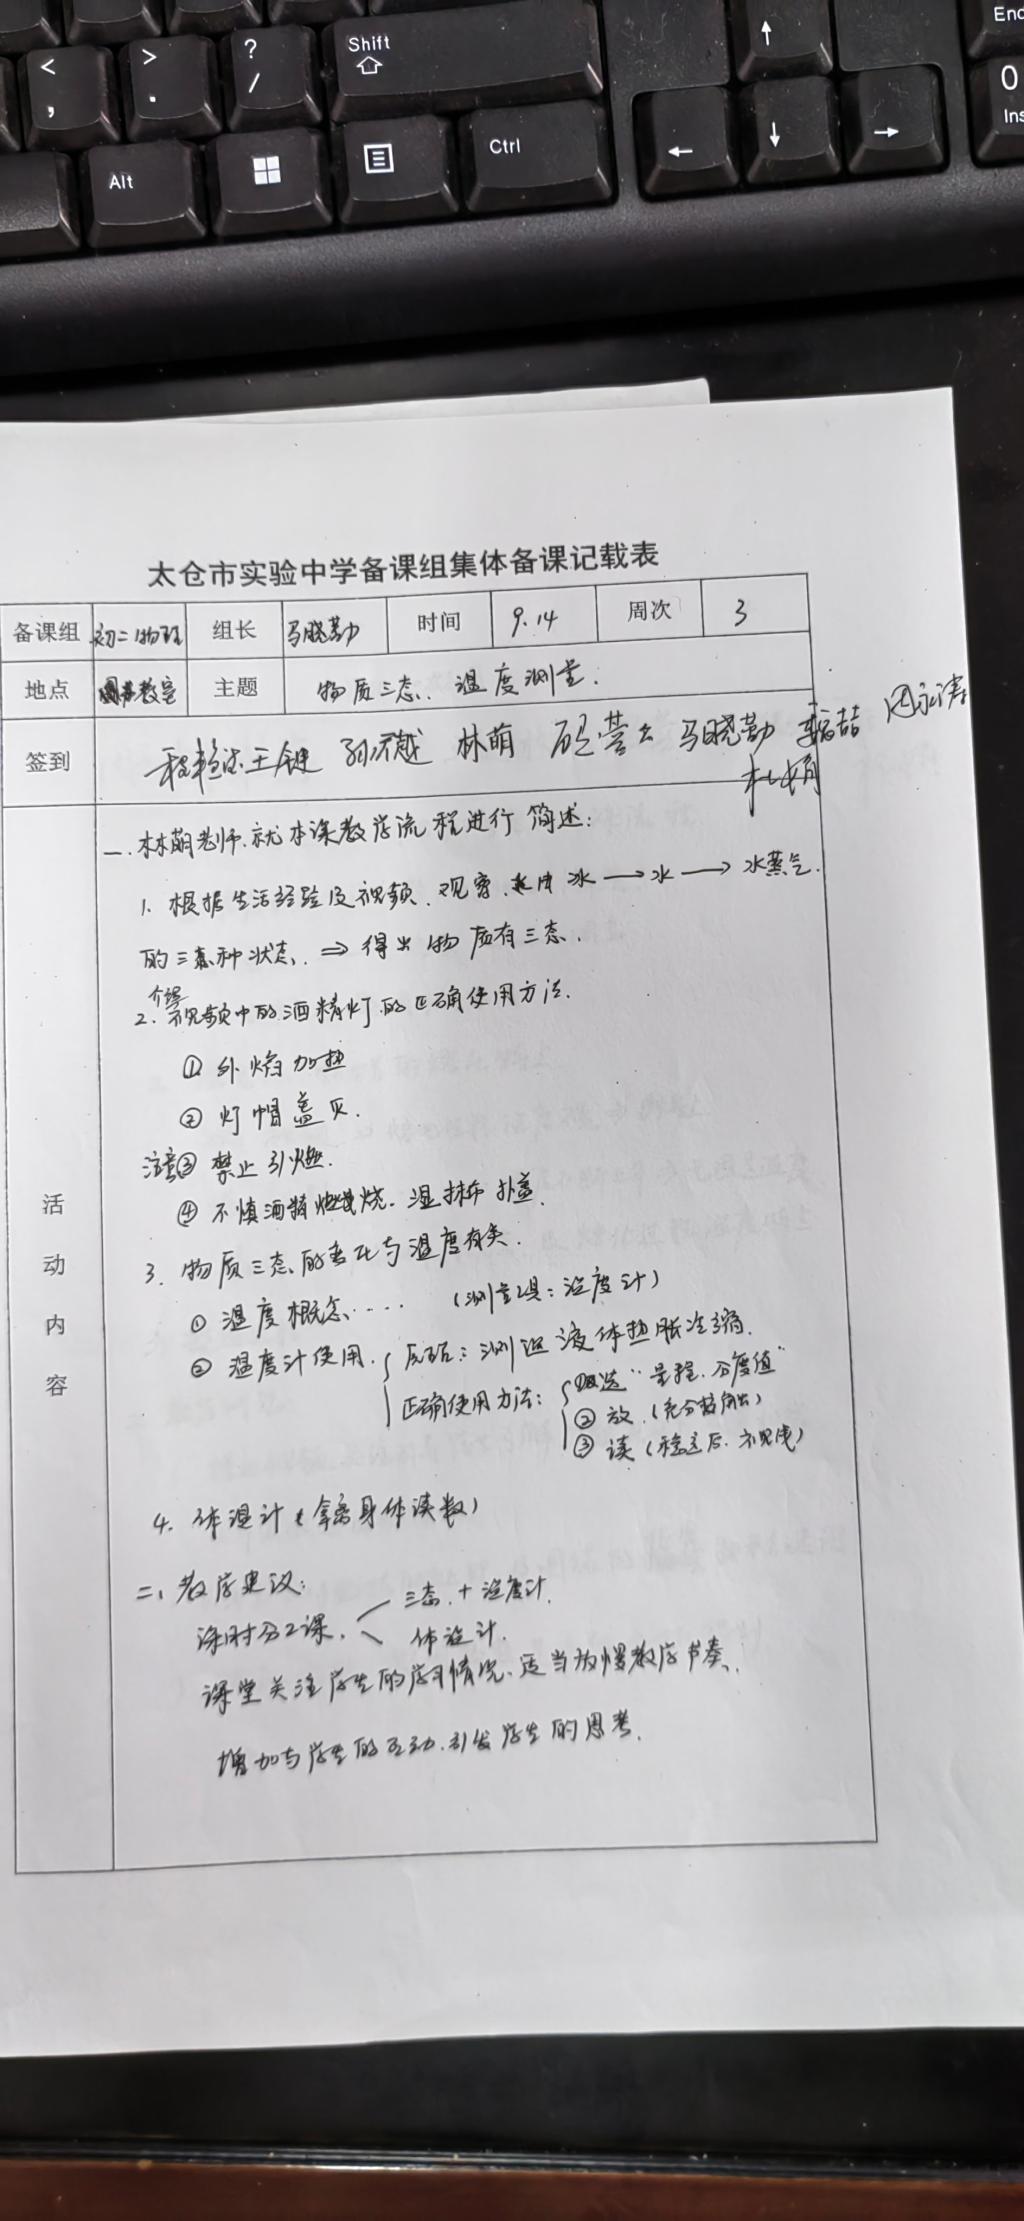 < ,
> .
? /
Shift
End
0
Ins
Alt
Ctrl
← ↓ → ↑
太仓市实验中学备课组集体备课记载表
备课组 初二物理 组长 马晓勤 时间 9.14 周次 3
地点 教室 主题 物质三态、温度测量.
签到 王健 林萌 马晓勤
杜娟
活动内容
一.林萌老师.就本课教学流程进行简述:
1. 根据生活经验及视频.观察. 冰→水→水蒸气.
的三种状态. ⇒ 得出物质有三态.
介绍
2. 视频中的酒精灯.的正确使用方法.
① 外焰加热
② 灯帽盖灭.
注意③ 禁止引燃.
④ 不慎酒精燃烧. 湿抹布扑盖.
3. 物质三态的变化与温度有关.
① 温度概念.... (测量工具:温度计)
② 温度计使用. { 原理:测温液体热胀冷缩.
正确使用方法: { ①选“量程.分度值”
② 放.(充分接触)
③ 读(稳定后.视线)
4. 体温计(拿离身体读数)
二、教学建议:
课时分2课. 三态.+温度计.
体温计.
课堂关注学生的学习情况.适当放慢教学节奏.
增加与学生的互动.引发学生的思考.